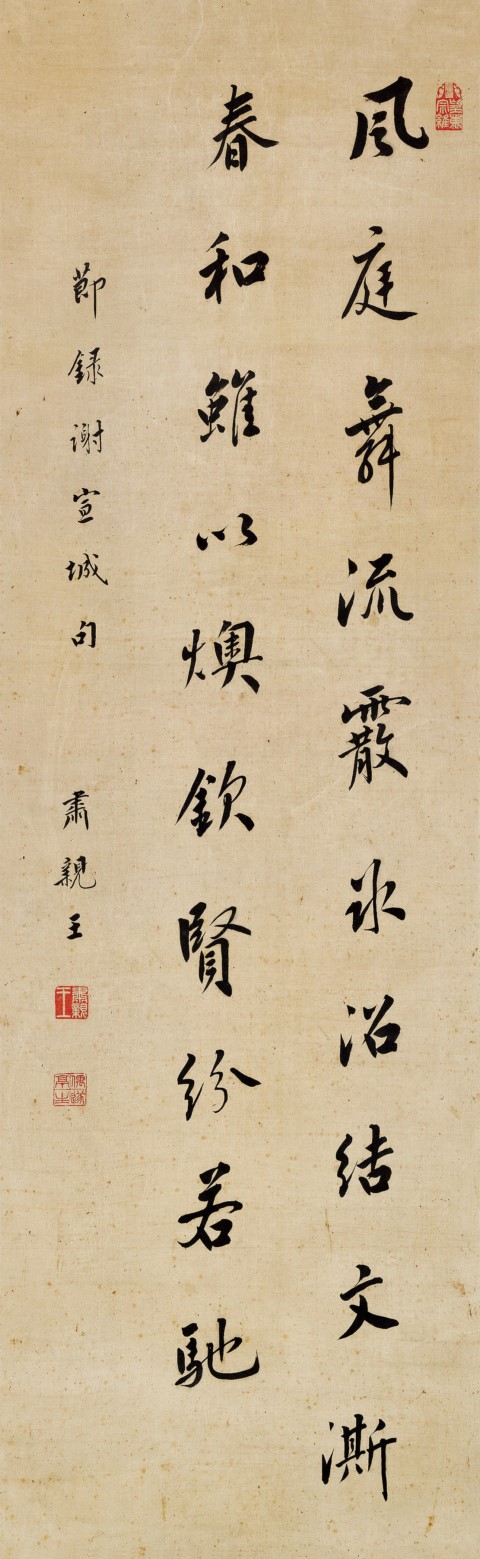 風庭舞流霰冰沼結文澌
春和雖以燠欽賢紛若馳
莭録謝宣城句
肅親王
肅親王